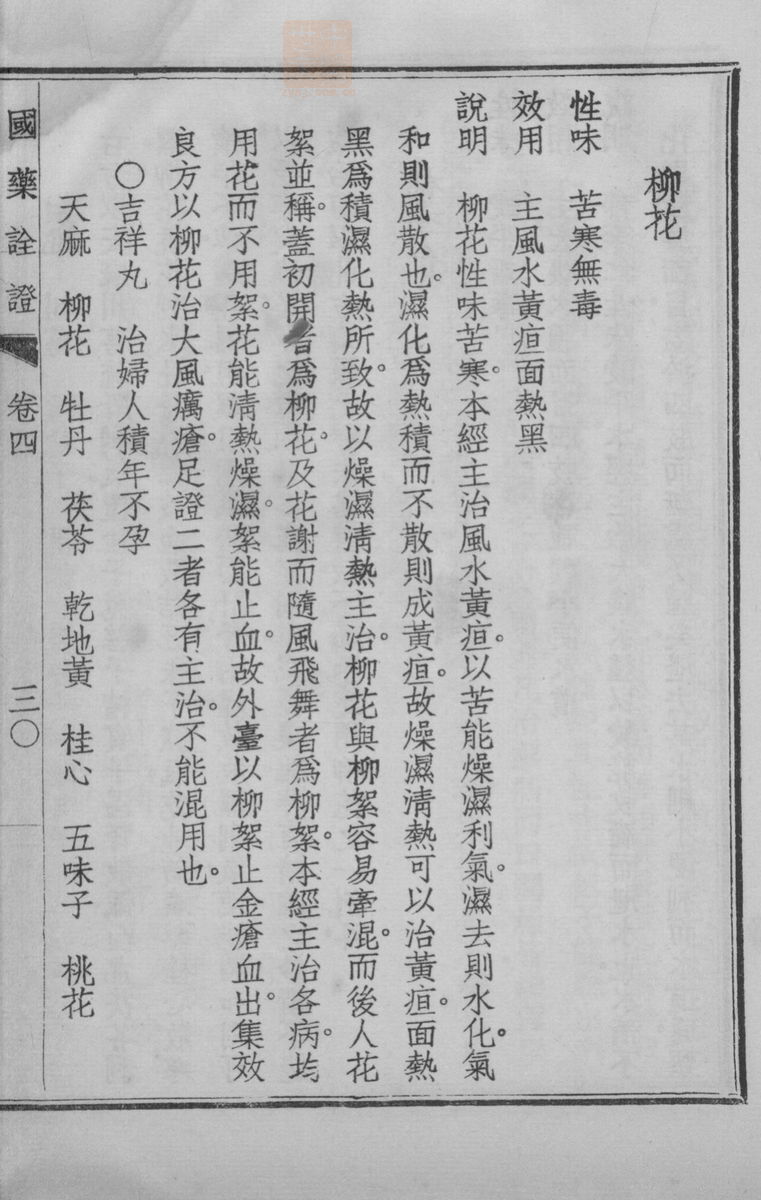 柳花
性味　苦寒無毒
效用　主風水黃疸面熱黑
說明　柳花性味苦寒。本經主治風水黃疸。以苦能燥濕利氣。濕去則水化。氣
和則風散也。濕化爲熱積而不散則成黃疸。故燥濕淸熱可以治黃疸。面熱
黑爲積濕化熱所致。故以燥濕淸熱主治。柳花與柳絮容易牽混。而後人花
絮並稱。蓋初開者爲柳花。及花謝而隨風飛舞者爲柳絮。本經主治各病。均
用花而不用絮。花能淸熱燥濕。絮能止血。故外臺以柳絮止金瘡血出。集效
良方以柳花治大風癘瘡。足證二者各有主治。不能混用也。
○吉祥丸　治婦人積年不孕
天麻　柳花　牡丹　茯苓　乾地黃　桂心　五味子　桃花
國藥詮證　卷四　三〇